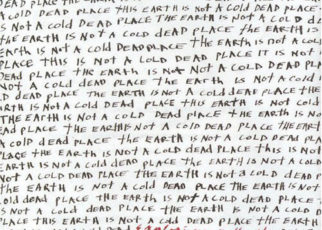 DEAD PLACE THE EARTH IS NOT A COLD DEAD PLACE
A COLD DEAD PLACE THIS EARTH IS NOT A COLD DEAD PLACE
IS NOT A COLD DEAD PLACE THE EARTH IS NOT A COLD D
EARTH IS NOT A COLD DEAD PLACE THE EARTH IS
EARTH IS NOT A COLD DEAD PLACE THE EARTH IS NOT A COLD
PLACE THIS IS NOT A COLD DEAD PLACE IT IS NOT
DEAD PLACE THE EARTH IS NOT A COLD DEAD PLACE
NOT A COLD DEAD PLACE THE EARTH IS NOT A COLD
COLD DEAD PLACE THE EARTH IS NOT A COLD DEAD PLACE THE
EARTH IS NOT A COLD DEAD PLACE THIS EARTH IS NOT A COLD
THE EARTH IS NOT A COLD DEAD PLACE THE EARTH IS NO
DEAD PLACE THE EARTH IS NOT A COLD DEAD PLACE THE EARTH
A COLD DEAD PLACE THE EARTH IS NOT A COLD DEAD PLA
PLACE THE EARTH IS NOT A COLD DEAD PLACE THIS IS NOT
EARTH IS NOT A COLD DEAD PLACE THE EARTH IS NOT A COLD
NOT A COLD DEAD PLACE THE EARTH IS NOT A COLD DEAD P
THE EARTH IS NOT A COLD DEAD PLACE THE EARTH IS NOT
COLD DEAD PLACE THIS EARTH IS NOT A COLD DEAD PLACE
IS NOT A COLD DEAD PLACE THE EARTH IS NOT A COLD
PLACE THIS EARTH IS NOT A COLD DEAD PLACE THE EARTH